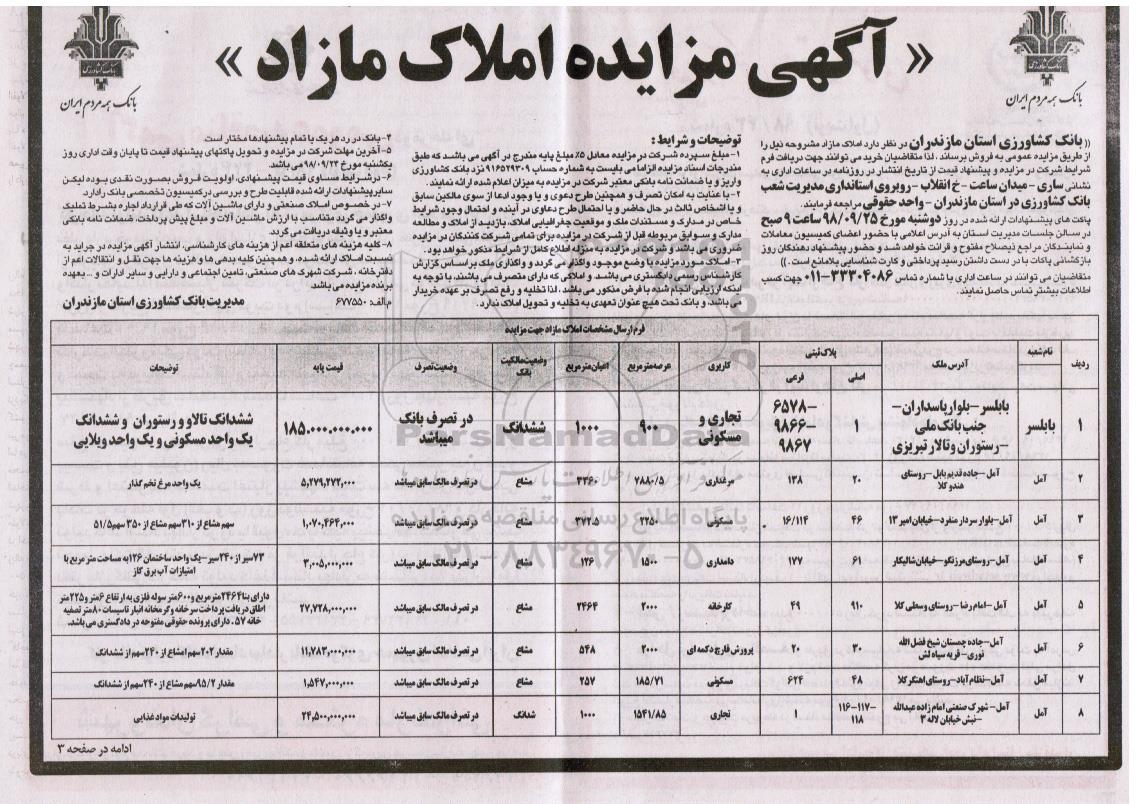 « آگهی مزایده املاک مازاد »
بانک کشاورزی
بانک همه مردم ایران
بانک کشاورزی
بانک همه مردم ایران
(( بانک کشاورزی استان مازندران در نظر دارد املاک مازاد مشروحه ذیل را
از طریق مزایده عمومی به فروش برساند . لذا متقاضیان خرید می توانند جهت دریافت فرم
شرایط شرکت در مزایده و پیشنهاد قیمت از تاریخ انتشار در روزنامه در ساعات اداری به
نشانی ساری - میدان ساعت - خ انقلاب - روبروی استانداری مدیریت شعب
بانک کشاورزی در استان مازندران - واحد حقوقی مراجعه فرمایند.
پاکت های پیشنهادات ارائه شده در روز دوشنبه مورخ ۹۸/۰۹/۲۵ ساعت ۹ صبح
در سالن جلسات مدیریت استان به آدرس اعلامی با حضور اعضای کمیسیون معاملات
و نمایندگان مراجع ذیصلاح مفتوح و قرائت خواهد شد و حضور پیشنهاد دهندگان روز
بازگشائی پاکات با در دست داشتن رسید پرداختی و کارت شناسایی بلامانع است . ))
متقاضیان می توانند در ساعت اداری با شماره تماس ۳۳۳۰۴۰۸۶-۰۱۱ جهت کسب
اطلاعات بیشتر تماس حاصل نمایند.
توضیحات و شرایط :
۱- مبلغ سپرده شرکت در مزایده معادل ۵٪ مبلغ پایه مندرج در آگهی می باشد که طبق
مندرجات اسناد مزایده الزاما می بایست به شماره حساب ۹۱۶۵۲۹۳۰۹ نزد بانک کشاورزی
واریز و یا ضمانت نامه بانکی معتبر شرکت در مزایده به میزان اعلام شده ارائه نمایند .
۲- با عنایت به امکان تصرف و همچنین طرح دعوی و یا وجود ادعا از سوی مالکین سابق
و یا اشخاص ثالث در حال حاضر و یا احتمال طرح دعاوی در آینده و احتمال وجود شرایط
خاص در مدارک و مستندات ملک و موقعیت جغرافیایی املاک، بازدید از املاک و مطالعه
مدارک و سوابق مربوطه قبل از شرکت در مزایده برای تمامی شرکت کنندگان در مزایده
ضروری می باشد و شرکت در مزایده به منزله اطلاع کامل از شرایط مذکور خواهد بود.
۳- املاک مورد مزایده با وضع موجود واگذار می گردد و واگذاری ملک بر اساس گزارش
کارشناس رسمی دادگستری می باشد. و املاکی که دارای متصرف می باشند، با توجه به
اینکه ارزیابی انجام شده با فرض مذکور می باشد، لذا تخلیه و رفع تصرف بر عهده خریدار
می باشد، و بانک تحت هیچ عنوان تعهدی به تخلیه و تحویل املاک ندارد.
۴- بانک در رد هر یک یا تمام پیشنهادها مختار است.
۵- آخرین مهلت شرکت در مزایده و تحویل پاکتهای پیشنهاد قیمت تا پایان وقت اداری روز
یکشنبه مورخ ۹۸/۰۹/۲۴ می باشد.
۶- در شرایط مساوی قیمت پیشنهادی، اولویت فروش بصورت نقدی بوده لیکن
سایر پیشنهادات ارائه شده قابلیت طرح و بررسی در کمیسیون تخصصی بانک را دارد.
۷- در خصوص املاک صنعتی و دارای ماشین آلات که طی قرارداد اجاره بشرط تملیک
واگذار می گردد متناسب با ارزش ماشین آلات و مبلغ پیش پرداخت، ضمانت نامه بانکی
معتبر و یا وثیقه دریافت می گردد.
۸- کلیه هزینه های متعلقه اعم از هزینه های کارشناسی، انتشار آگهی مزایده در جراید به
نسبت املاک ارائه شده، و همچنین کلیه بدهی ها و هزینه ها جهت نقل و انتقالات اعم از
دفترخانه ، شرکت شهرک های صنعتی، تامین اجتماعی و دارایی و سایر ادارات و ... بعهده
برنده مزایده می باشد.
م الف: ۶۷۷۵۵۰
مدیریت بانک کشاورزی استان مازندران
فرم ارسال مشخصات املاک مازاد جهت مزایده
ردیف نام شعبه آدرس ملک پلاک ثبتی اصلی فرعی کاربری عرصه مترمربع اعیان مترمربع وضعیت مالکیت بانک وضعیت تصرف قیمت پایه توضیحات
۱ بابلسر بابلسر – بلوار پاسداران – جنب بانک ملی – رستوران و تالار تبریزی ۱ ۶۵۷۸– ۹۸۶۶– ۹۸۶۷ تجاری و مسکونی ۹۰۰ ۱۰۰۰ ششدانگ در تصرف بانک میباشد ۱۸۵.۰۰۰.۰۰۰.۰۰۰ ششدانگ تالار و رستوران و ششدانگ یک واحد مسکونی و یک واحد ویلایی
۲ آمل آمل – جاده قدیم بابل – روستای هندوکلا ۲۰ ۱۳۸ مرغداری ۷۸۸۰/۵ ۳۳۶۰ مشاع در تصرف مالک سابق میباشد ۵,۲۷۹,۲۷۲,۰۰۰ یک واحد مرغ تخم گذار
۳ آمل آمل – بلوار سردار منفرد – خیابان امیر ۱۳ ۴۶ ۱۶/۱۱۴ مسکونی ۲۲۵۰ ۳۷۲.۵ مشاع در تصرف مالک سابق میباشد ۱,۰۷۰,۴۶۴,۰۰۰ سهم مشاع از ۳۱۰ سهم مشاع از ۳۵۰ سهم ۵۱/۵
۴ آمل آمل – روستای مرزنگو – خیابان شالیکار ۶۱ ۱۷۷ دامداری ۱۵۰۰ ۱۲۶ مشاع در تصرف مالک سابق میباشد ۳,۰۰۵,۰۰۰,۰۰۰ ۷۳ سیر از ۲۴۰ سیر – یک واحد ساختمان ۱۲۶ به مساحت متر مربع با امتیازات آب برق گاز
۵ آمل آمل – امام رضا – روستای وسطی کلا ۹۱۰ ۴۹ کارخانه ۲۰۰۰ ۲۴۶۴ مشاع در تصرف مالک سابق میباشد ۲۷,۷۲۸,۰۰۰,۰۰۰ دارای بنا ۲۴۶۴ مترمربع و ۶۰۰ متر سوله فلزی به ارتفاع ۶ متر و ۲۲۵ متر اطاق دریافت پرداخت سرخانه و گرمخانه انبار تاسیسات ۸۰ متر تصفیه خانه ۵۷. دارای پرونده حقوقی مفتوحه در دادگستری می باشد.
۶ آمل آمل – جاده چمستان شیخ فضل الله نوری – قریه سیاه لش ۳۰ ۲۰ پرورش قارچ دکمه ای ۲۰۰۰ ۵۴۸ مشاع در تصرف مالک سابق میباشد ۱۱,۷۸۳,۰۰۰,۰۰۰ مقدار ۲۰۲ سهم امشاع از ۲۴۰ سهم از ششدانگ
۷ آمل آمل – نظام آباد – روستای اهنگرکلا ۴۸ ۶۲۴ مسکونی ۱۸۵/۷۱ ۲۵۷ مشاع در تصرف مالک سابق میباشد ۱,۵۴۷,۰۰۰,۰۰۰ مقدار ۹۵/۲ سهم مشاع از ۲۴۰ سهم از ششدانگ
۸ آمل آمل – شهرک صنعتی امام زاده عبدالله – نبش خیابان لاله ۳ ۱۱۶-۱۱۷-۱۱۸ ۱ تجاری ۱۵۴۱/۸۵ ۱۰۰۰ شدانگ در تصرف مالک سابق میباشد ۲۴,۵۰۰,۰۰۰,۰۰۰ تولیدات مواد غذایی
ادامه در صفحه ۳
ParsNamadData
پایگاه اطلاع رسانی مناقصه و مزایده
۰۲۱-۸۸۳۴۹۶۷۰-۵